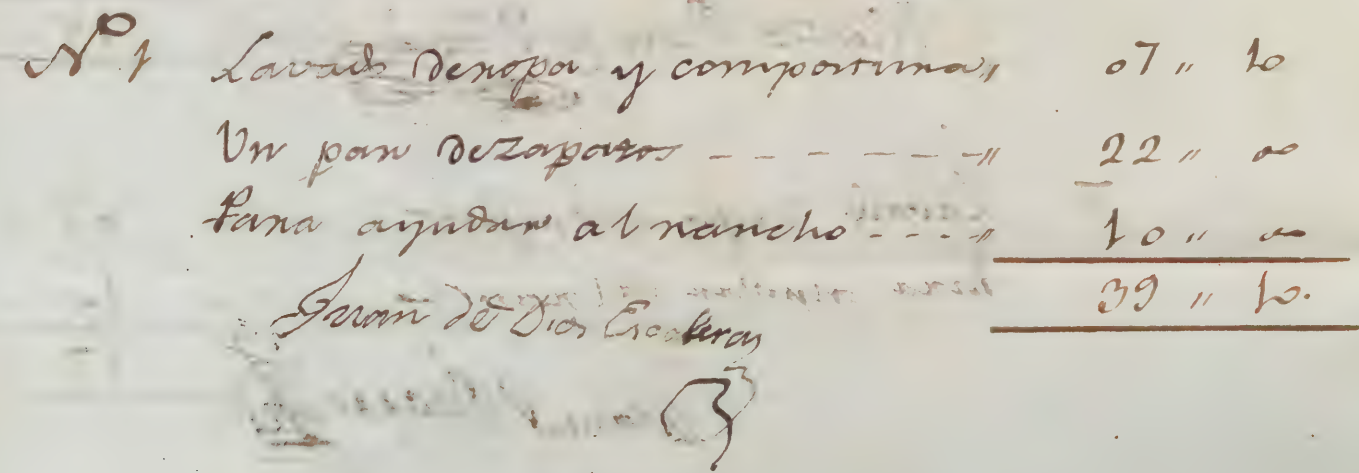 Nº 1 Lavado de ropa y compostura „ 07 „ 10
Un par de zapatos - - - - - - „ 22 „ 00
Para ayudar al rancho - - - - „ 10 „ 00
39 „ 10.
Juan de Dios Escaleras